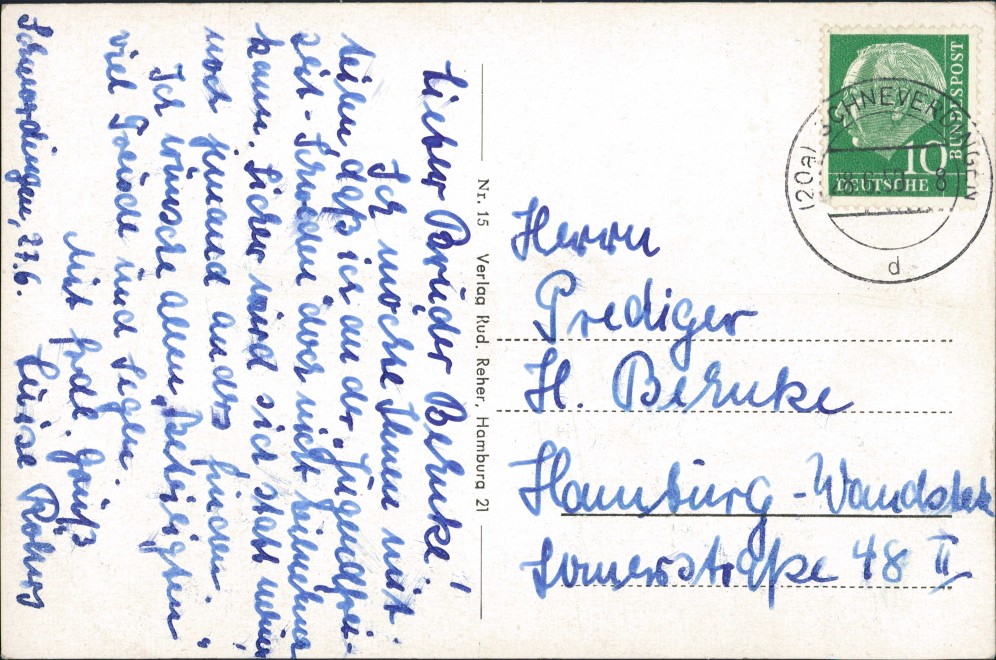 Lieber Bruder Behnke!
Ich möchte Ihnen mit-
teilen, daß ich an der Jugendfrei-
zeit - Schweden doch nicht teilnehmen
kann. Sicher wird sich statt meiner
noch jemand anders finden.
Ich wünsche allen Beteiligten
viel Freude und Segen.
Mit frdl. Gruß
Luise Röhrs
Schneverdingen, 27.6.
Nr. 15 Verlag Rud. Reher, Hamburg 21
BUNDESPOST
10
DEUTSCHE
(20a) SCHNEVERDINGEN
d
Herrn
Prediger
H. Behnke
Hamburg-Wandsbek
48 II